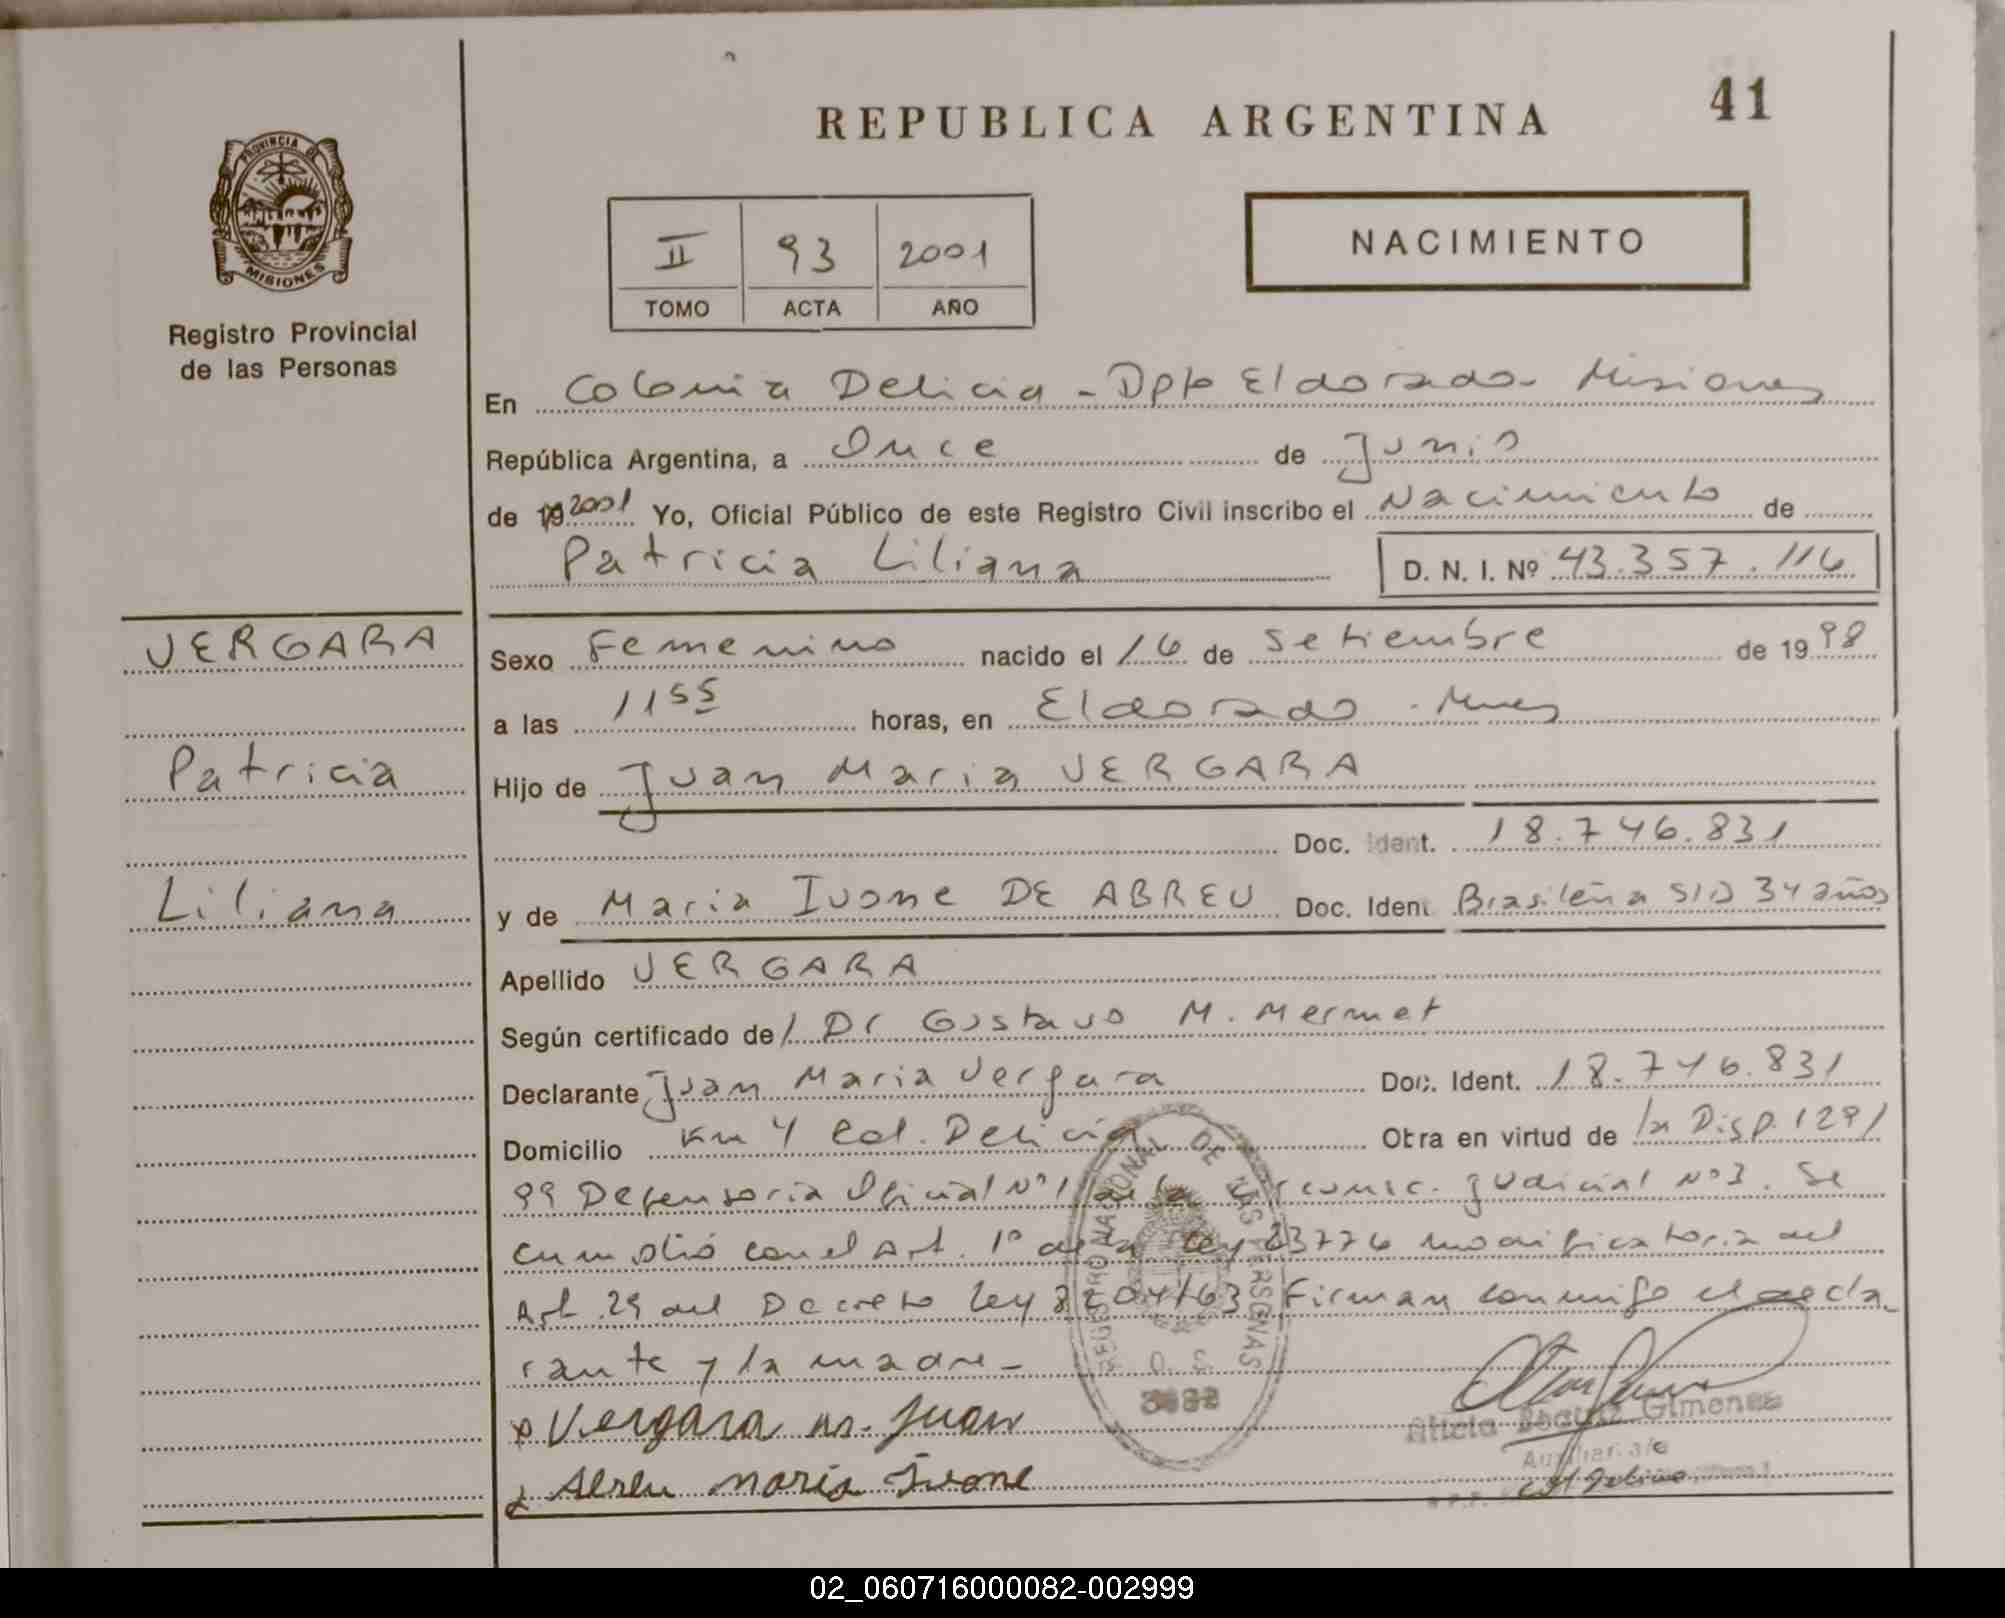 41
REPUBLICA ARGENTINA
PROVINCIA DE
MISIONES
Registro Provincial
de las Personas
II 93 2001
TOMO ACTA AÑO
NACIMIENTO
En Colonia Delicia - Dpto Eldorado - Misiones
República Argentina, a Once de Junio
de 19 2001 Yo, Oficial Público de este Registro Civil inscribo el Nacimiento de
Patricia Liliana D. N. I. Nº 43.357.116
VERGARA
Patricia
Liliana
Sexo Femenino nacido el 16 de Setiembre de 1998
a las 11 55 horas, en Eldorado - Mnes
Hijo de Juan Maria VERGARA
Doc. Ident. 18.746.831
y de Maria Ivone DE ABREU Doc. Ident. Brasileña S/D 34 años
Apellido VERGARA
Según certificado de/ Dr Gustavo M. Mermet
Declarante Juan Maria Vergara Doc. Ident. 18.746.831
Domicilio Km 4 Col. Delicia Otra en virtud de la Disp. 129/
99 Defensoria Oficial Nº 1 de la Circunsc. Judicial Nº 3. Se
cumplió con el Art. 1º de la Ley 23776 modificatoria del
Art. 29 del Decreto Ley 8204/63 Firman conmigo el decla
rante y la madre -
x Vergara m. Juan
x Abreu maria Ivone
REGISTRO NACIONAL DE LAS PERSONAS
O. S.
Alicia Gimenez
Auxiliar a/c
02_060716000082-002999